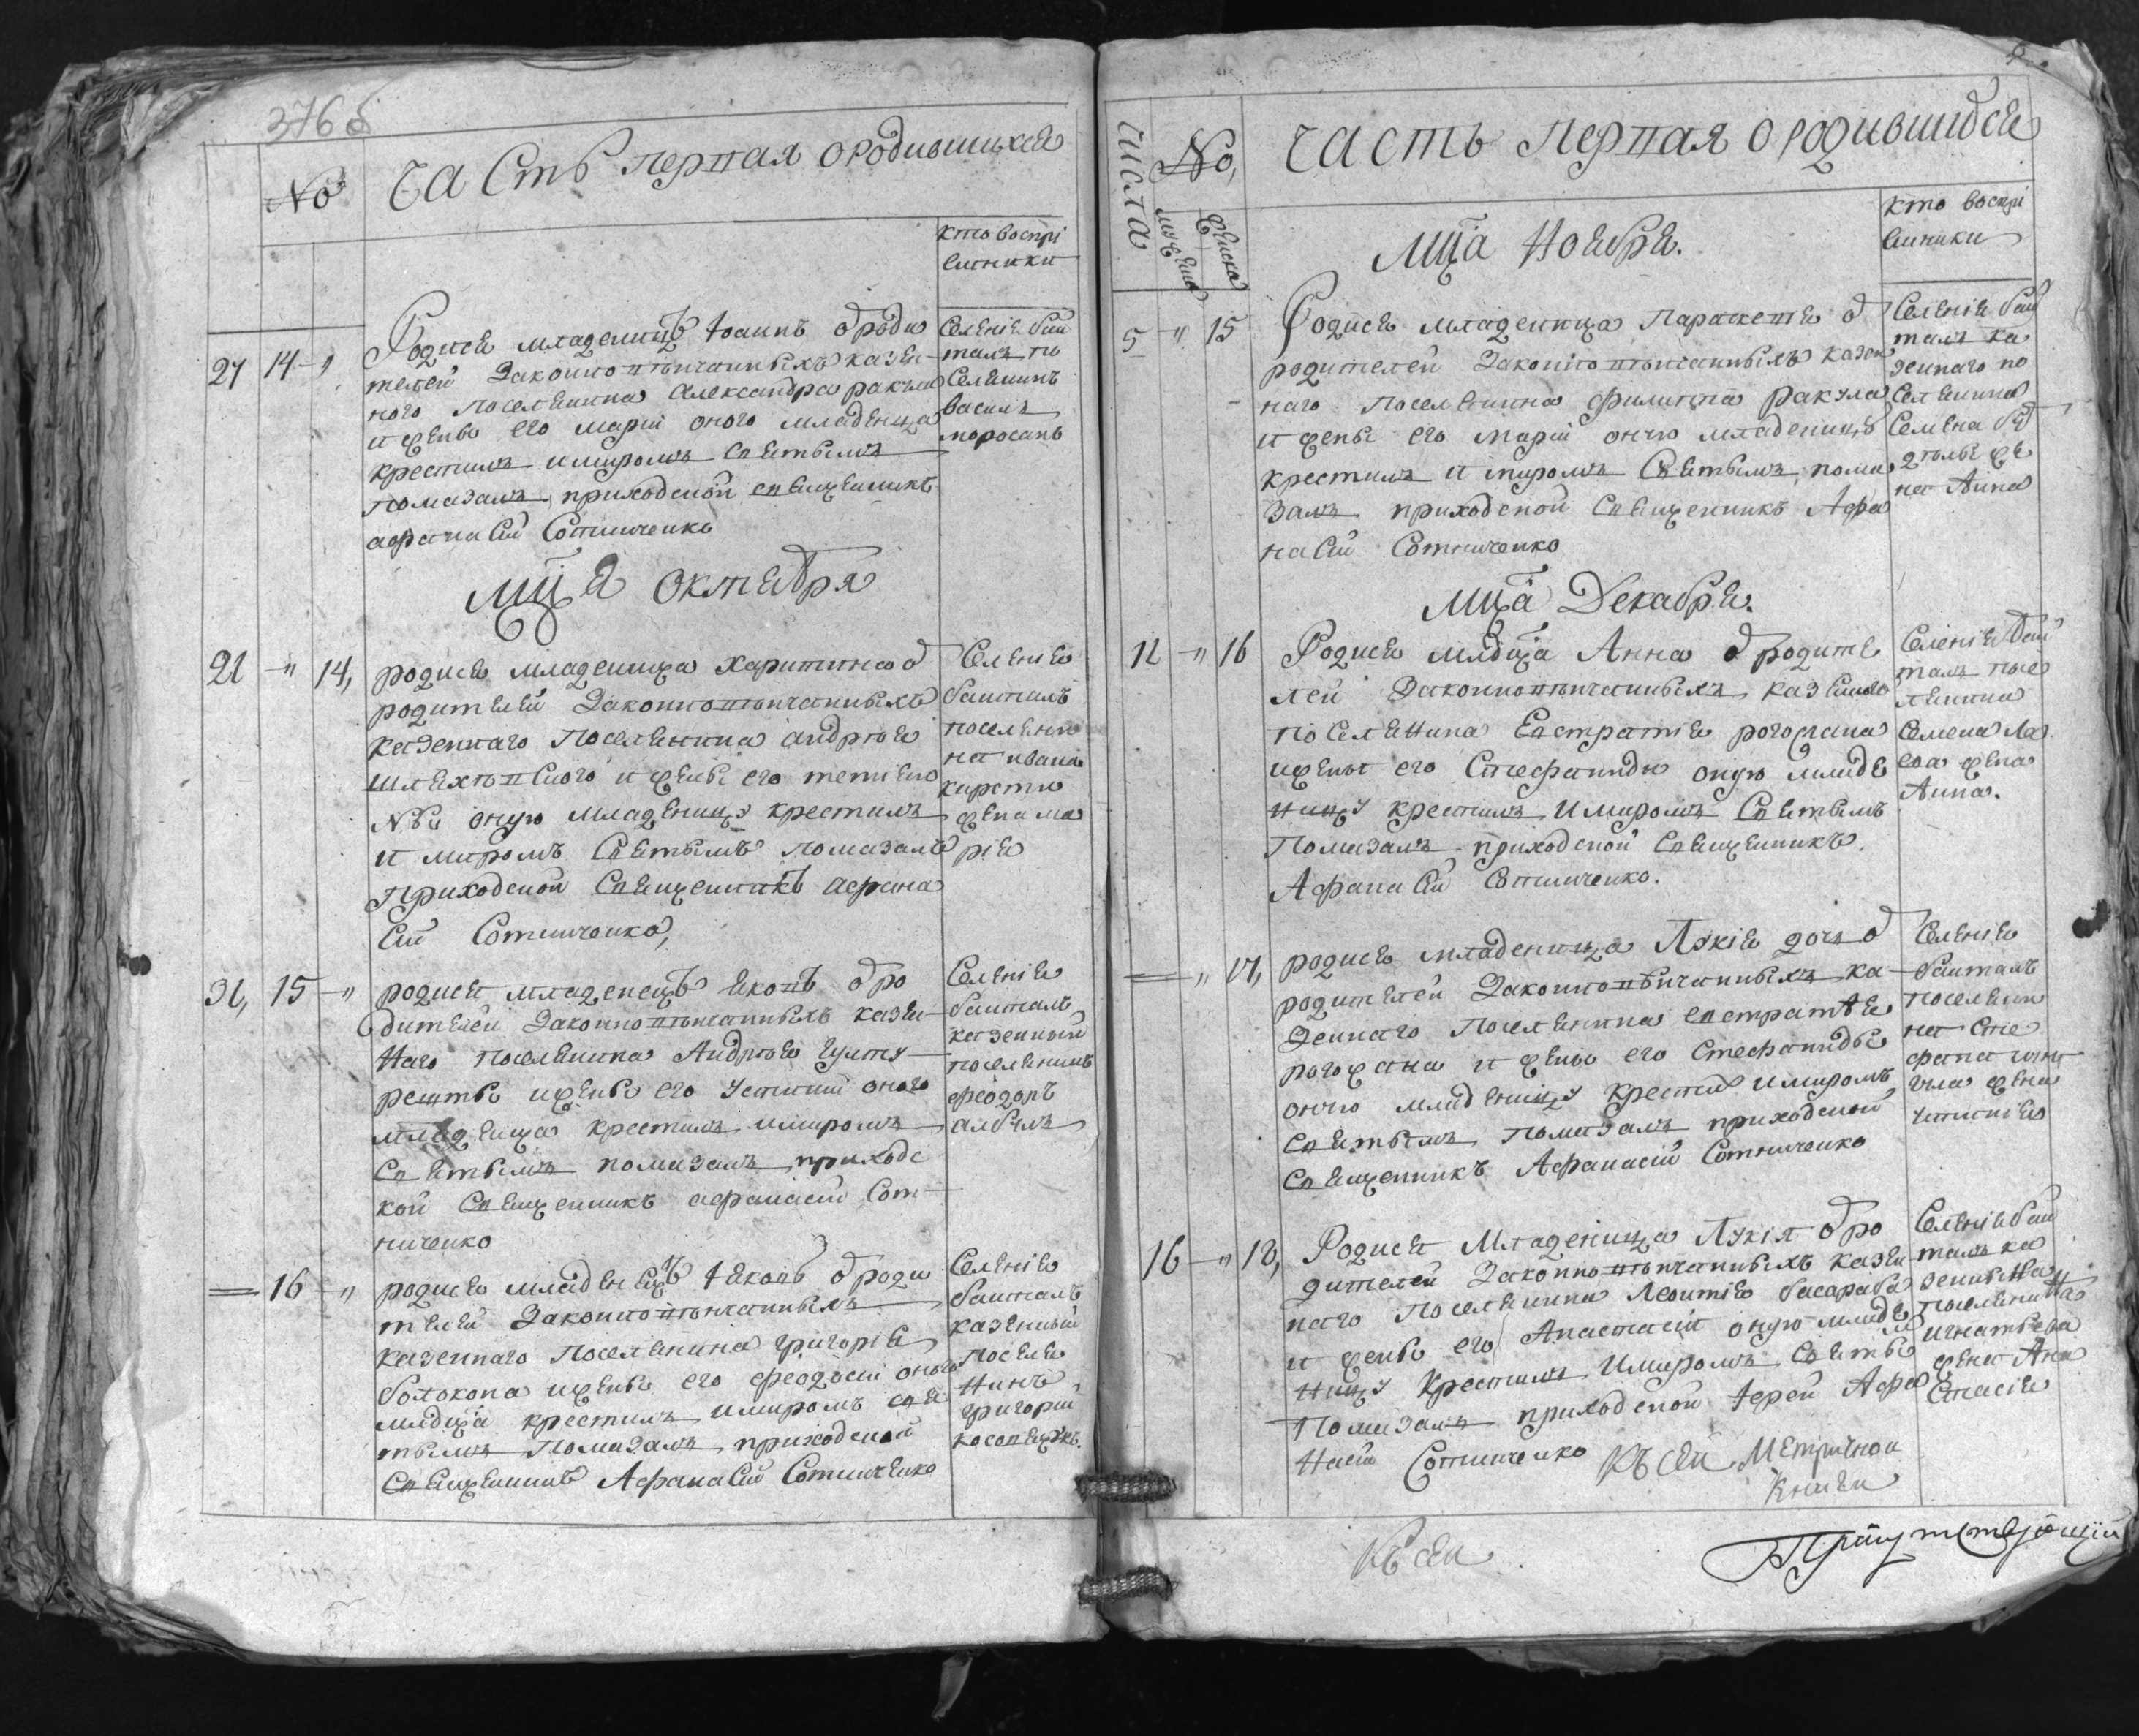 376 б
№
ЧаСть первая о родившихся
кто воспрі
емники
27 14 „
Родися младенецъ Іоаннъ ѿ роди
телей законновѣнчанныхъ казен
ного поселянина Александра ракула
и жены его маріи оного младенца
крестилъ и миромъ святымъ
помазалъ приходской священникъ
афанасій Сотниченко
Селенія баш
талъ по
Селянинъ
василъ
моросанъ
мц҃а октября
21 „ 14,
родися младеница харитина ѿ
родителей законновѣнчанныхъ
казеннаго поселянина андрѣя
шляхѣвского и жены его
оную младеницу крестилъ
и миромъ Святымъ помазалъ
приходской Священникъ афана
сій Сотниченко,
Селенія
башталъ
поселяни
на ивана
жена ма
рія
31, 15 „
родися младенецъ яковъ ѿ ро
дителей законновѣнчанныхъ казен
наго поселянина Андрѣя
и жены его устиніи оного
младенца крестилъ и миромъ
Святымъ помазалъ приходс
кой Священникъ афанасій Сот
ниченко
Селенія
башталъ
казенный
поселянинъ
феодоръ
албулъ
16 „
родися младенецъ Іяковъ ѿ роди
телей законновѣнчанныхъ
казеннаго поселянина григорія
болокана и жены его феодосіи оного
млднца крестилъ и миромъ свя
тымъ помазалъ приходской
Священникъ Афанасій Сотниченко
Селенія
башталъ
казенный
поселя
нинъ
григорій
№
числа
мужеска
женска
часть первая о родившихся
кто воспрі
емники
Мц҃а Ноября.
5 „ 15
Родися младеница Параскева ѿ
родителей законновѣнчанныхъ казен
наго поселянина филиппа ракула
и жены его маріи оную младеницу
крестилъ и миромъ Святымъ пома
залъ приходской Священникъ Афа
насій Сотниченко
Селенія баш
талъ ка
зеннаго по
селянина
Семена
же
на Анна
Мц҃а Декабря.
12 „ 16
Родися млднца Анна ѿ родите
лей законновѣнчанныхъ казенного
поселянина Евстратія рогожана
и жены его Стефаниды оную младе
ницу крестилъ и миромъ Святымъ
помазалъ приходской Священникъ
Афанасій Сотниченко.
Селенія баш
талъ посе
лянина
Семена
жена
Анна.
„ 17,
родися младеница Лукія дочь ѿ
родителей законновѣнчанныхъ ка
зеннаго поселянина евстратѣя
рогожана и жены его Стефаниды
оную младеницу крестилъ и миромъ
святымъ помазалъ приходской
Священникъ Афанасій Сотниченко
Селенія
башталъ
поселяни
на Сте
фана
жена
16 „ 18,
Родися Младеница Лукія ѿ ро
дителей законновѣнчанныхъ казен
наго поселянина Леонтія басараба
и жены его Анастасіи оную младе
ницу крестилъ и миромъ Святы
помазалъ приходской Іерей Афа
насій Сотниченко
Селенія баш
талъ ка
зенына
поселянина
игнатьева
жена Ана
стасія
Къ сей Метричной
Книги
Къ сей